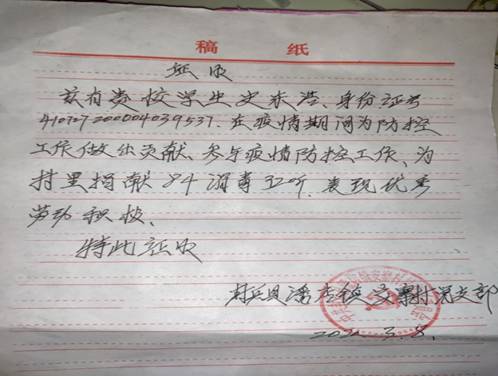 稿 纸
证明
兹有贵校学生史东浩、身份证号
410727200004039537.在疫情期间为防控
工作做出贡献、参与疫情防控工作、为
村里捐献84消毒32听.表现优秀
劳动积极、
特此证明
封丘县潘店镇 村党支部
202 .3.8.